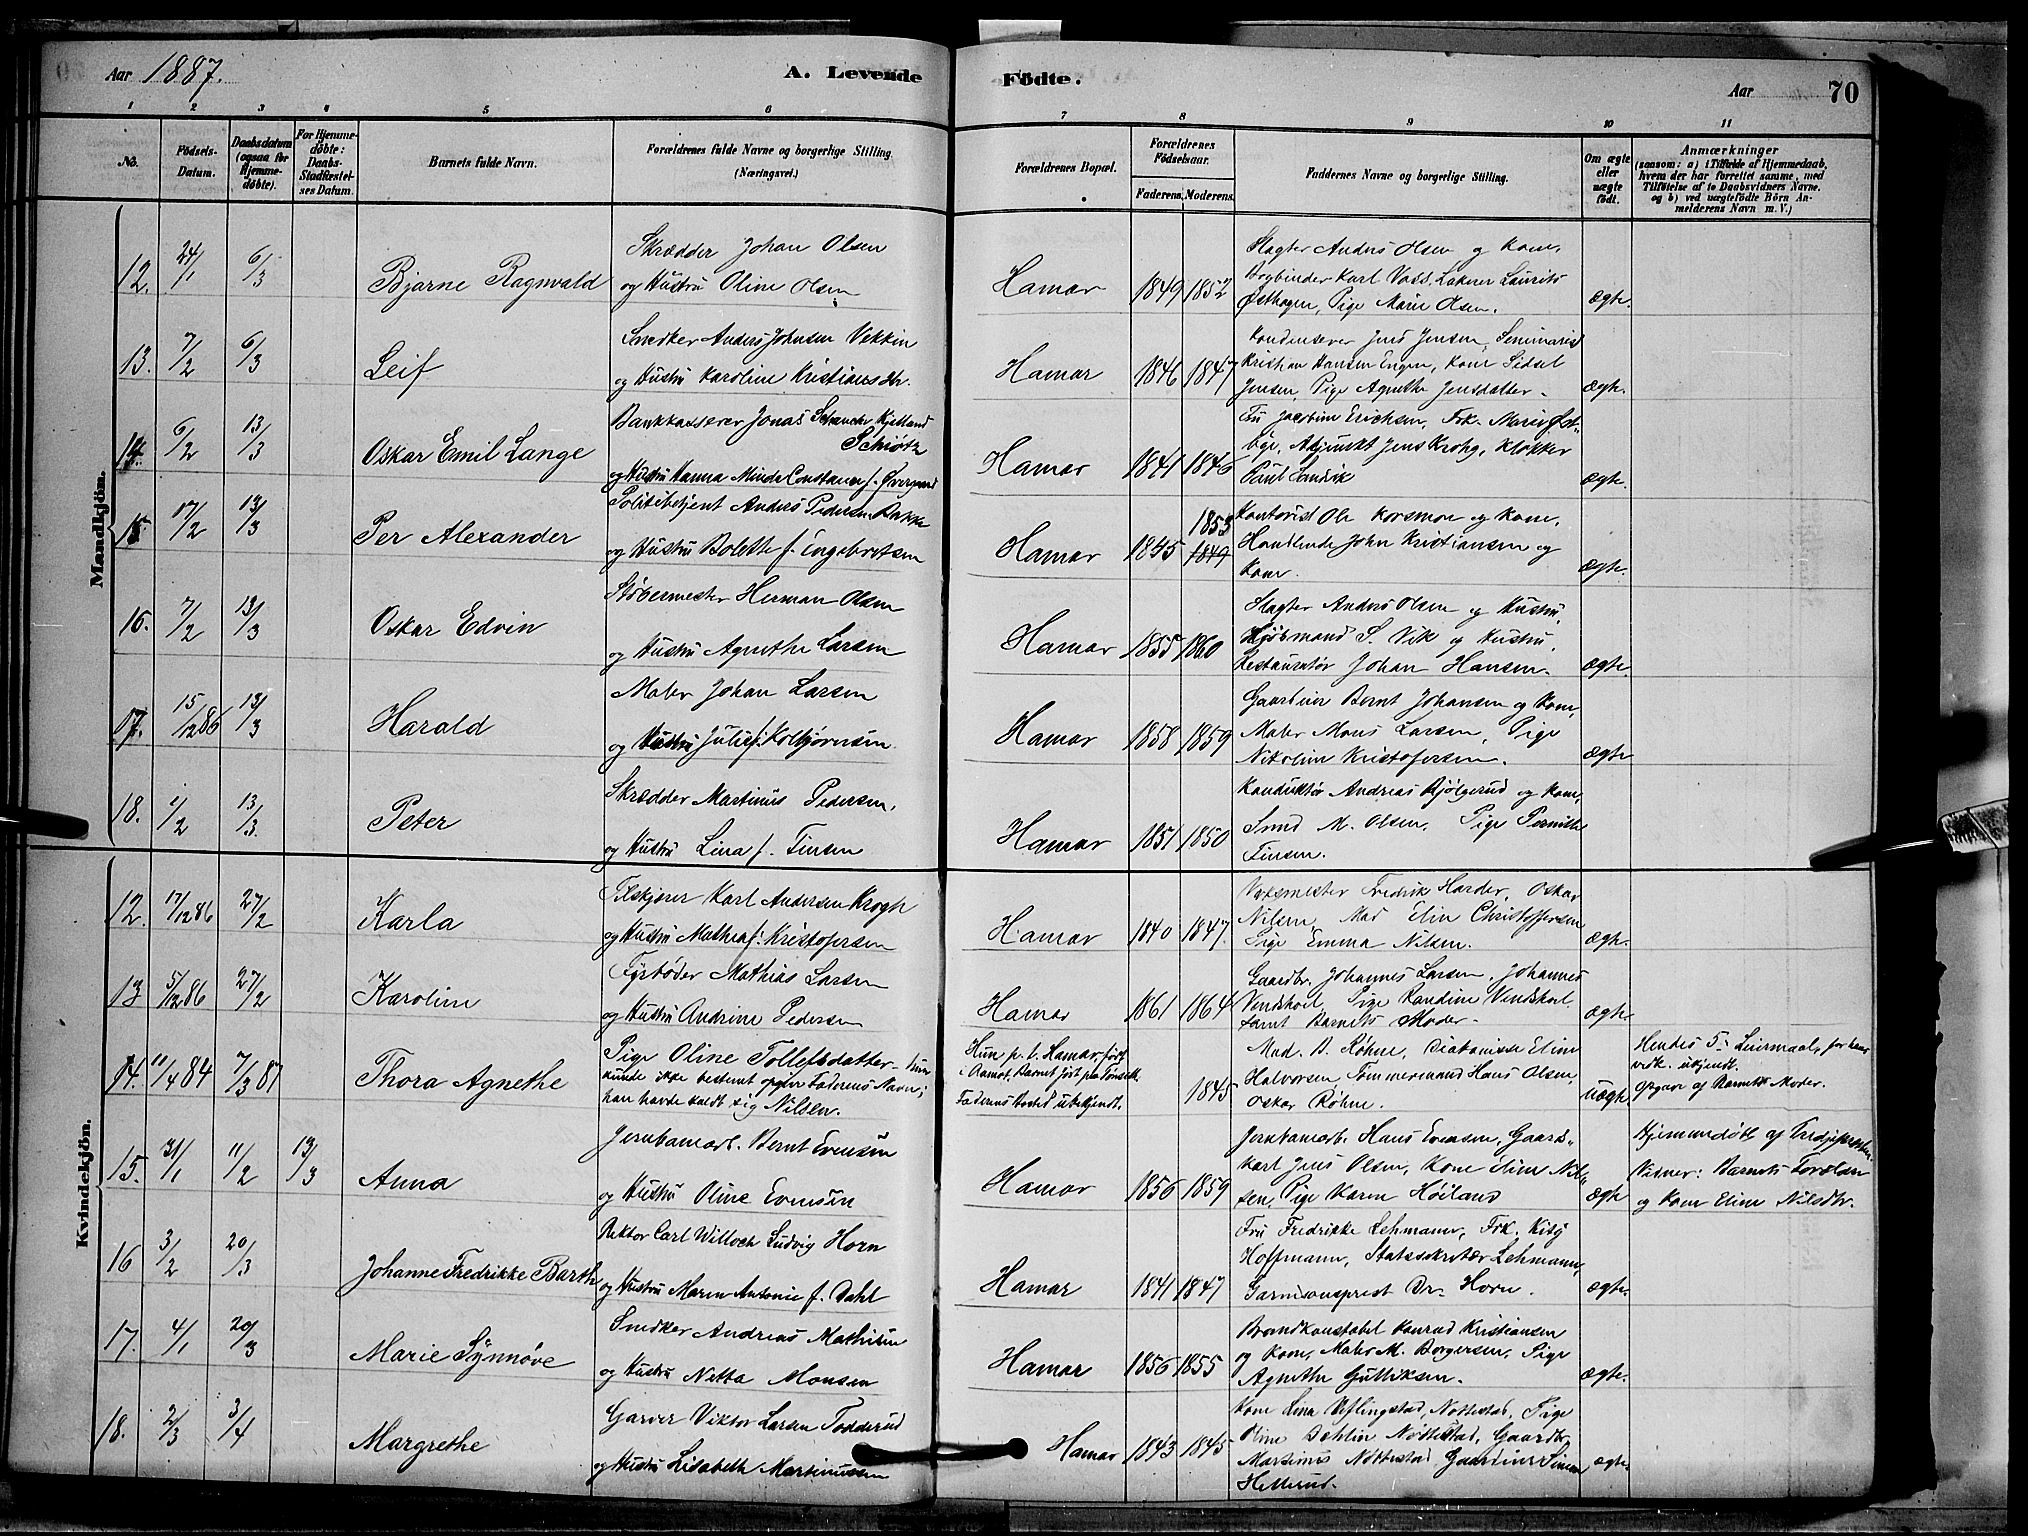 Aar 1887.
A. Levende Födte.
Aar 70
1 2 3 4 5 6 7 8 9 10 11
No.
Födsels-Datum.
Daabsdatum (ogsaa for Hjemme-döbte).
For Hjemme-döbte: Daabs-Stadfæstel-ses Datum.
Barnets fulde Navn.
Forældrenes fulde Navne og borgerlige Stilling. (Næringsvei.)
Forældrenes Bopæl.
Forældrenes Födselsaar.
Faderens. Moderens.
Faddernes Navne og borgerlige Stilling.
Om ægte eller uægte födt.
Anmærkninger
(saasom: a) i Tilfælde af Hjemmedaab,
hvem der har forrettet samme, med
Tilföielse af to Daabsvidners Navne.
og b) ved uægtefödte Börn An-
melderens Navn m. V.)
Mandkjön.
12. 24/1 6/3 Bjarne Ragnvald
Skrædder Johan Olsen
og Hustru Oline Olsen
Hamar 1849 1852
Slagter Anders Olsen og Kone,
Bogbinder Karl Vass, Laurits
Østhagen, Pige Marie Olsen.
ægte.
13. 7/2 6/3 Leif
Snedker Anders Johnsen Vekkin
og Hustru Karoline Kristiansdr.
Hamar 1846 1847
Jens Jensen, Seminarist
Kristian Hansen Engen, Kone Sidsel
Jensen, Pige Agnethe Jensdatter.
ægte.
14. 6/2 13/3 Oskar Emil Lange
Bankkasserer Jonas Schanche Kjelland
Schiøtz
og Hustru Hanna Minda Constance f. Øvergaard
Hamar 1841 1846
Fru Jacobine Erichsen, Frk. Marie Øst-
bye, Adjunkt Jens Krohg, Klokker
Paul Sandvik
ægte.
15. 17/2 13/3 Per Alexander
Politibetjent Anders Pedersen Bakke
og Hustru Bolette f. Engebretsen
Hamar 1845 1853 1849
Kontorist Ole Korsmoe og Kone,
Handlende John Kristiansen og
Kone.
ægte.
16. 7/2 13/3 Oskar Edvin
Støbermester Herman Olsen
og Hustru Agnethe Larsen
Hamar 1855 1860
Slagter Anders Olsen og Hustru,
Kjøbmand S. Vik og Hustru,
Restauratør Johan Hansen.
ægte.
17. 15/12 86 13/3 Harald
Maler Johan Larsen
og Hustru Julie f. Kolbjørnsen.
Hamar 1858 1859
Gaardeier Bernt Johansen og Kone,
Maler Mons Larsen, Pige
Nikoline Kristofersen.
ægte
18. 1/2 13/3. Peter
Skrædder Martinus Pedersen,
og Hustru Lina f. Finsen
Hamar 1851 1850
Konduktør Andreas Bjølgerud og Kone,
Smed M. Olsen, Pige Pernille
Finsen.
Kvindekjön.
12. 17/12 86 27/2 Karla
Filskjærer Karl Andersen Krogh
og Hustru Mathea f. Kristofersen
Hamar 1840 1847.
Fredrik Harder, Oskar
Nilsen, Mad Elin Christoffersen
Pige Emma Nilsen.
ægte.
13 5/12 86 27/2 Karoline
Fyrbøder Mathias Larsen
og Hustru Andrine Pedersen
Hamar 1861 1864
Gaardbr. Johannes Larsen, Johannes
Vendskoel, Pige Randine Vendskoel
samt Barnets Moder.
ægte.
14. 11/4 84 7/3 87 Thora Agnethe
Pige Oline Tollefsdatter. Hun
kunde ikke bestemt opgive Faderens Navn;
han havde kaldt sig Nilsen.
Hun p. t. Hamar, født
i Aamot, Barnet født paa Tønset.
Faderens Bosted ubekjendt.
1845
Mad. B. Røhne, Diakonisse Elin
Halvorsen, Tømmermand Hans Olsen,
Oskar Røhne.
uægte.
Hendes 5te Leiermaal, for ham
vdk. ubkjendt.
Opgave af Barnets Moder.
15. 31/1 11/2 13/3 Anna
Jernbanearb. Bernt Evensen
og Hustru Oline Evensen
Hamar 1856 1859
Jernbanearb. Hans Evensen, Gaards-
karl Jens Olsen, Kone Eline Nil-
sen, Pige Karen Høiland
ægte
Hjemmedøbt af
Vidner: Barnets Forældre
og Kone Eline Nilsdtr.
16 3/2 20/3 Johanne Fredrikke Barth
Rektor Carl Willoch Ludvig Horn
og Hustru Maren Antonie f. Dahl
Hamar 1841 1847
Fru Fredrikke Lehmann, Frk. Kitty
Hoffmann, Statssekretær Lehmann,
Garnisonsprest Dr. Horn.
ægte.
17. 4/1 20/3 Marie Synnøve
Snedker Andreas Mathisen
og Hustru Netta Monsen
Hamar 1856 1855
Brandkonstabel Konrad Kristiansen
og Kone, Maler M. Borgersen, Pige
Agnethe Gulliksen.
ægte.
18. 2/3 3/4 Margrethe
Garver Viktor Larsen Fodderud
og Hustru Lisabeth Martinussen
Hamar 1843 1845
Kone Lina Uflingstad, Nøttestad, Pige
Oline Dehlin Nøttestad, Gaardbr.
Martinus Nøttestad Gaardeier Simen
Hellerud.
ægte.